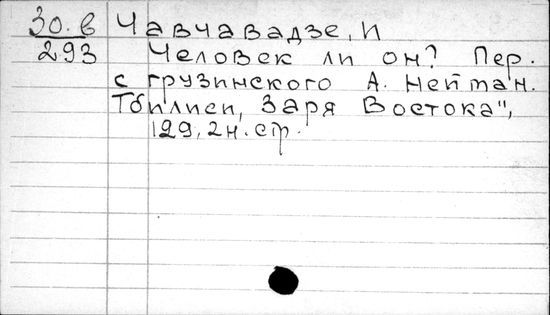 30.в Чавчавадзе, И
293 Человек ли он? Пер.
с грузинского А. Нейман.
Тбилиси, Заря Востока",
129, 2н.стр.